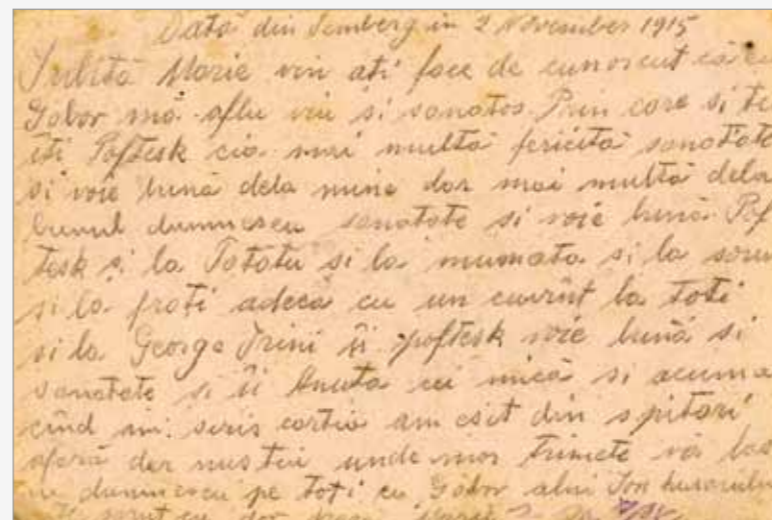 Data din Lemberg in 2 November 1915
Iubită Marie vin ați face de cunoscut că eu
Gabor mă aflu viu si sanatos Prin care si ție
iti Poftesk cia mai multă fericită sanatate
si voie bună dela mine dar mai multă dela
bunul dumnescu sanatate si voie bună Pof
tesk și la Tatatu si la mumata si la soru
si la frati adecă cu un cuvînt la toti
si la George Irini ii poftesk voie bună si
sanatate si ii Anuta cei mică si acuma
cînd am scris cartia am esit din spitari
afară dar nu stiu unde mor trimete vă las
cu dumnescu pe toti eu Gabor alui Ion
cu dor